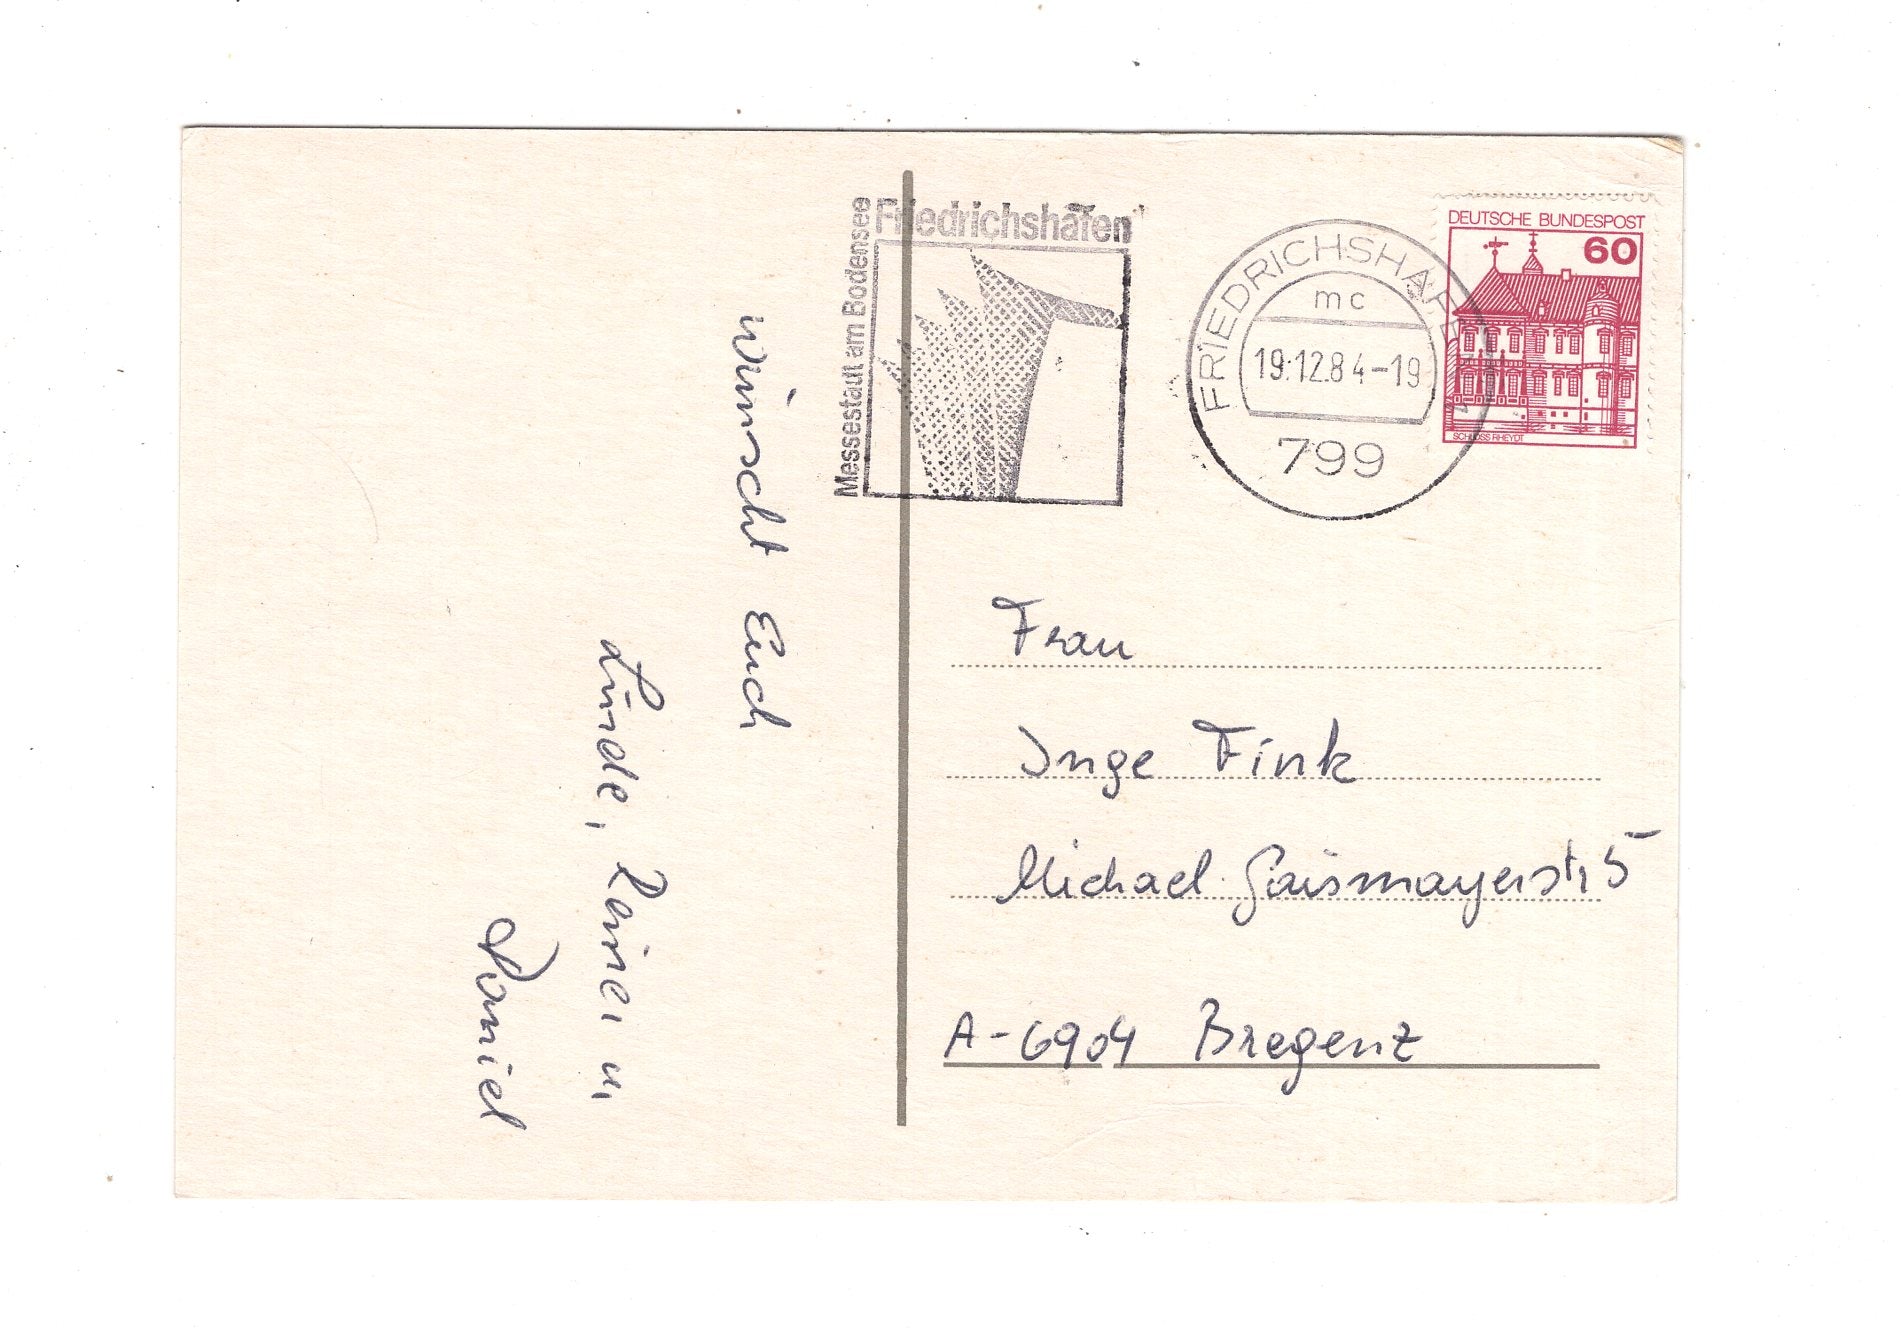 wünscht Euch
Linde, Reiner u.
Daniel
Friedrichshafen
Messestadt am Bodensee
FRIEDRICHSHAFEN
mc
19.12.84-19
799
DEUTSCHE BUNDESPOST
60
SCHLOSS RHEYDT
Frau
Inge Fink
Michael Gaismayerstr 5
A-6904 Bregenz